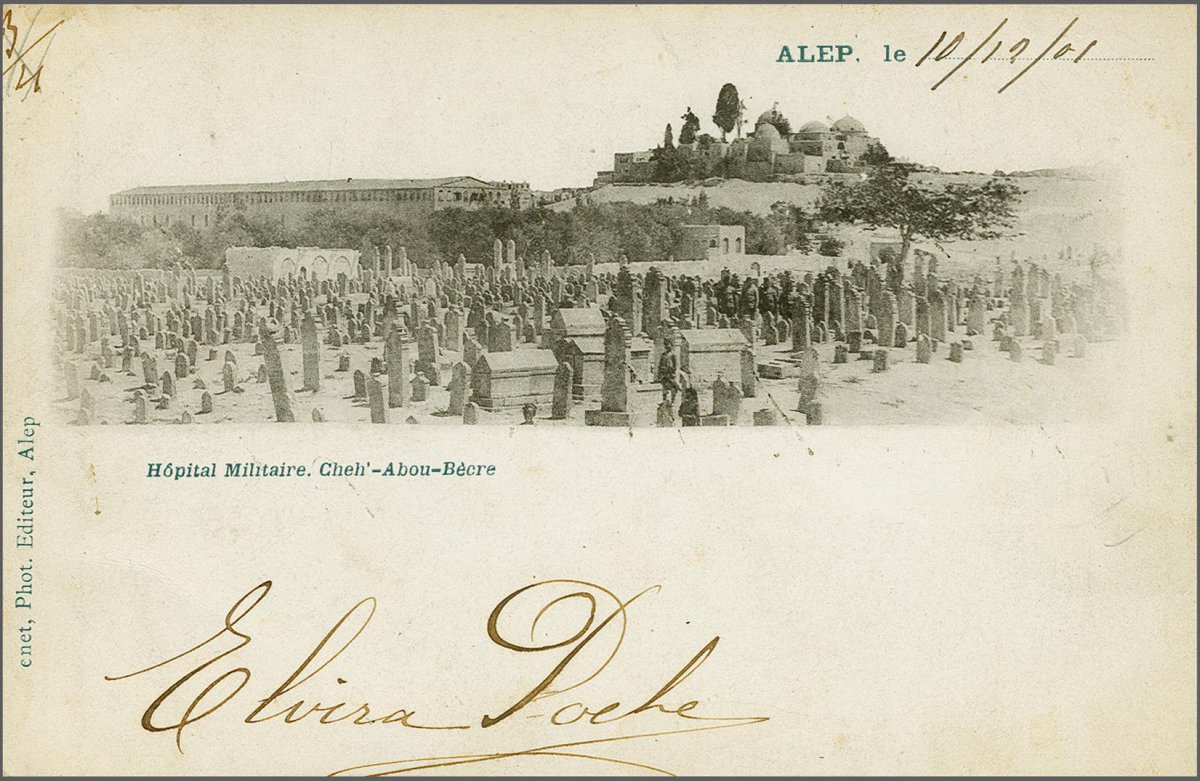 3/21
ALEP, le 10/12/01
Hôpital Militaire. Cheh'-Abou-Bècre
cnet, Phot. Editeur, Alep
Elvira Poche